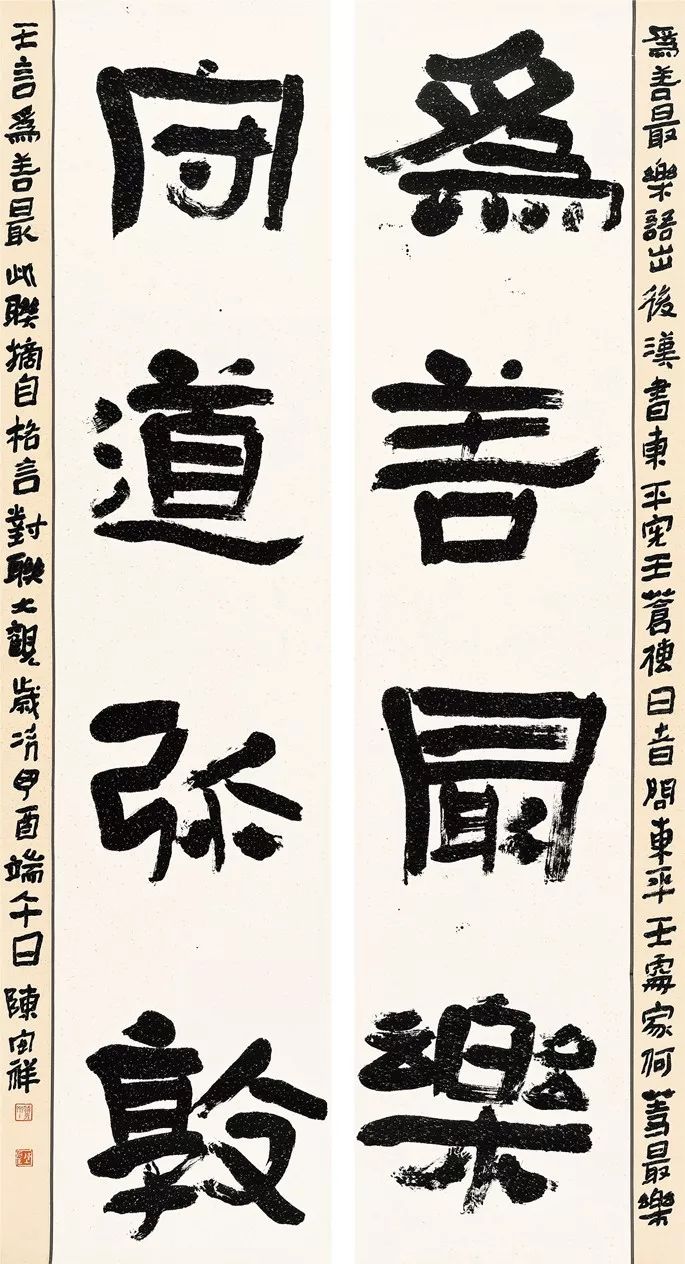 爲善最樂語出後漢書東平宪王蒼傳曰昔問東平王處家何等最樂
爲善最樂
守道弥敦
王言爲善最此聯摘自格言對聯大觀歲次酉端午日陳祥